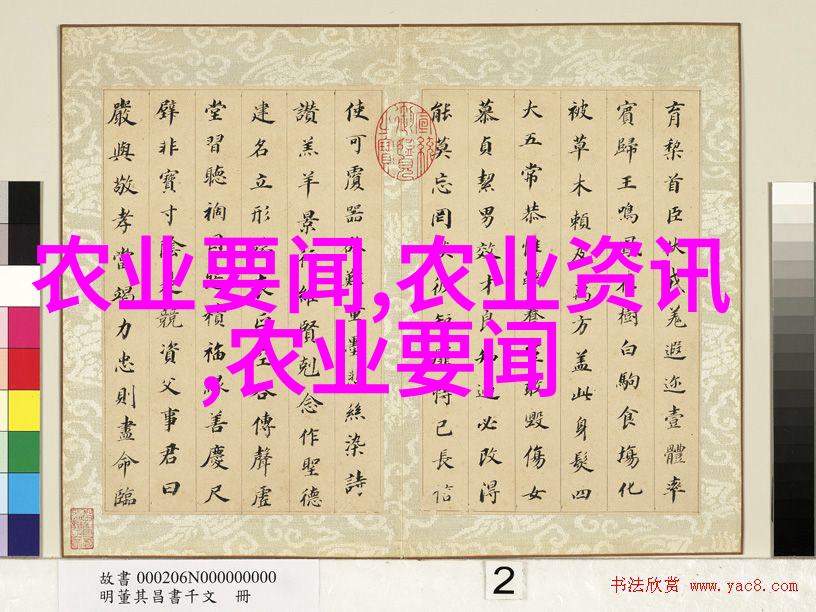 育黎首臣伏戎羌遐迩壹體率
賓歸王鳴鳳在樹白駒食場化
被草木賴及萬方蓋此身髮四
大五常恭惟鞠養豈敢毀傷女
慕貞絜男效才良知過必改得
能莫忘罔談彼短靡恃己長信
使可覆器欲難量墨悲絲染詩
讚羔羊景行維賢剋念作聖德
建名立形端表正空谷傳聲虛
堂習聽禍因惡積福緣善慶尺
璧非寶寸陰是競資父事君曰
嚴與敬孝當竭力忠則盡命臨
宣統御覽之寶
农业要闻,农业资讯
,农业要闻
故書 000206N000000000
明董其昌書千文 冊
2
书法欣赏 www.yac8.com